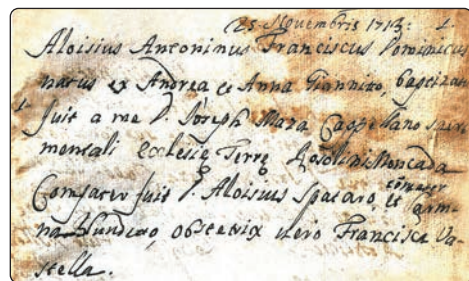 25 Novembris 1713: 1.
Aloisius Antoninus Franciscus Dominicus
natus ex Andrea et Anna Giannito, baptizatus
fuit a me D. Joseph Maza Cappellano sacra
mentali Ecclesię Terrę Rosolini Moncada
Compater fuit D. Aloisius Spataro, et
commater
na obstetrix vero Francisca Va-
stella.